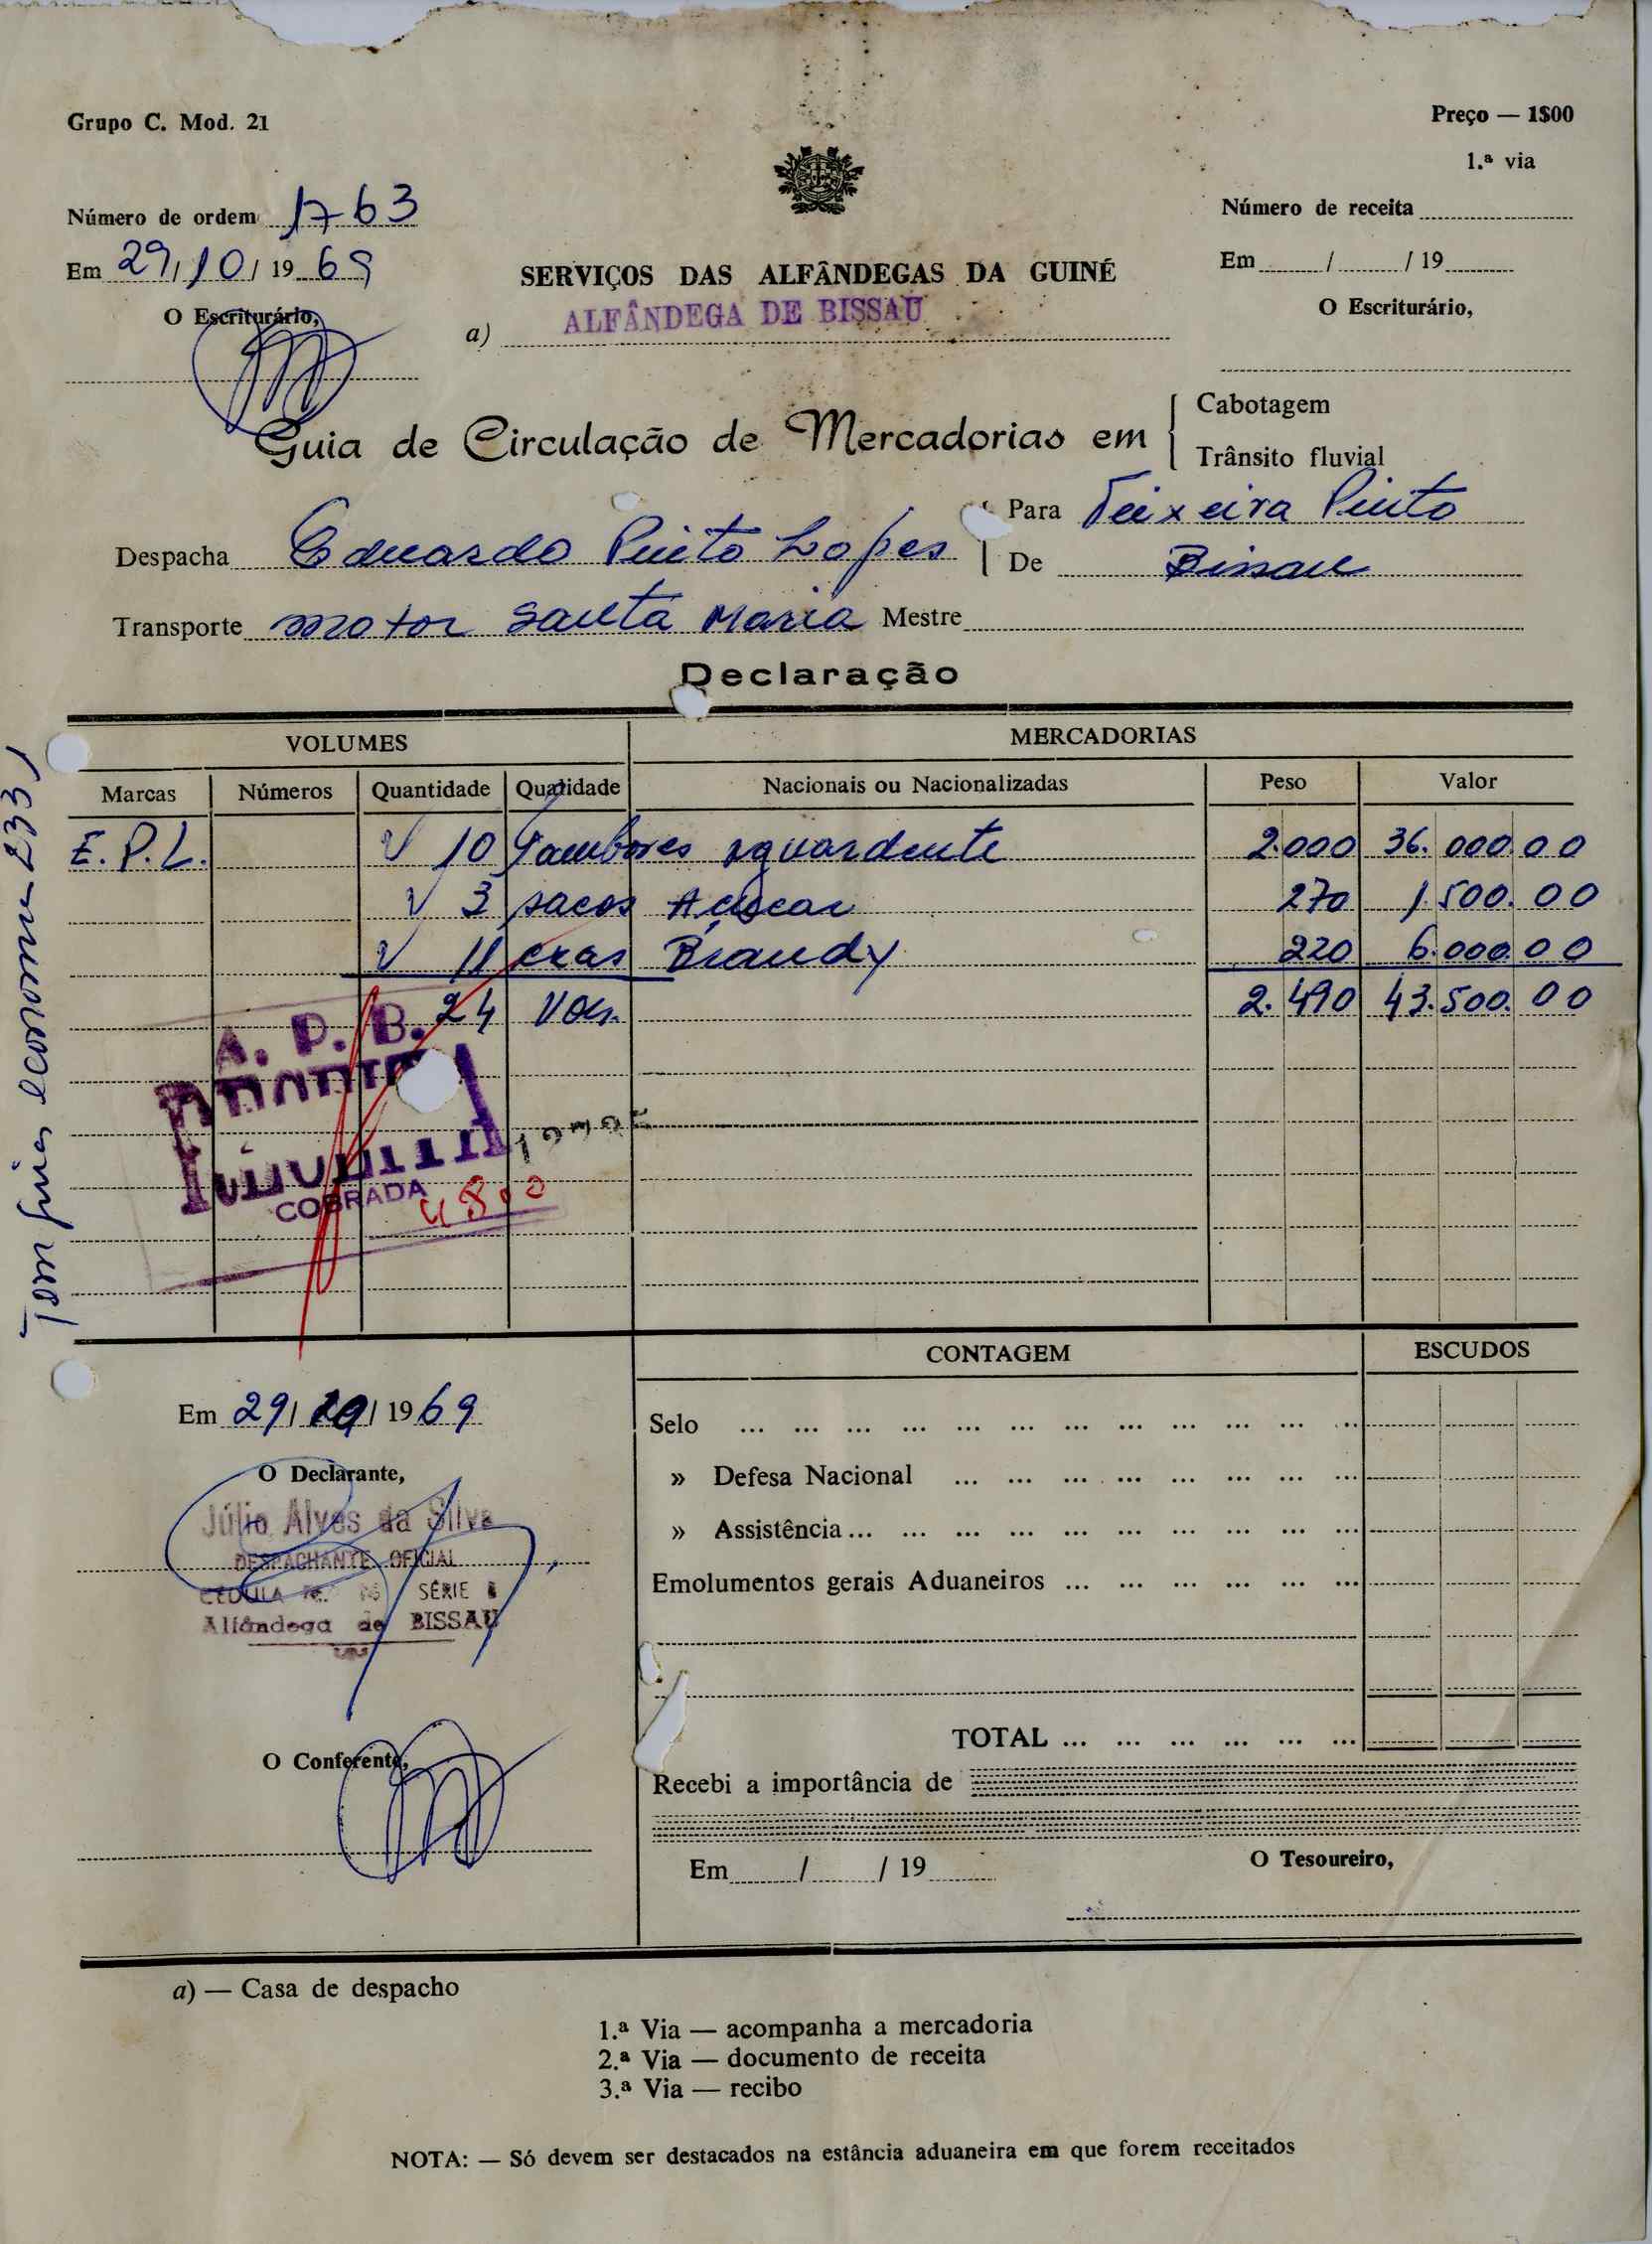 Grupo C. Mod. 21
Preço — 1$00
1.ª via
Número de ordem 1763
Número de receita
Em 29/10/1969
Em / /19
O Escriturário,
O Escriturário,
SERVIÇOS DAS ALFÂNDEGAS DA GUINÉ
a) ALFÂNDEGA DE BISSAU
Guia de Circulação de Mercadorias em
Cabotagem
Trânsito fluvial
Despacha Eduardo Pinto Lopes
Para Teixeira Pinto
De Bissau
Transporte motor Santa Maria Mestre
Declaração
VOLUMES MERCADORIAS
Marcas Números Quantidade Qualidade Nacionais ou Nacionalizadas Peso Valor
E.P.L. 10 Tambores aguardente 2.000 36.000.00
3 sacos Açúcar 270 1.500.00
11 cxas Brandy 220 6.000.00
24 Vols. 2.490 43.500.00
A. P. B.
COBRADA
4800
Tem guia economia 2331
CONTAGEM ESCUDOS
Em 29/10/1969
O Declarante,
Júlio Alves da Silva
DESPACHANTE OFICIAL
CÉDULA SÉRIE
Alfândega de BISSAU
O Conferente,
Selo ... ... ... ... ... ... ... ... ... ... ... ...
» Defesa Nacional ... ... ... ... ... ... ... ...
» Assistência ... ... ... ... ... ... ... ... ... ...
Emolumentos gerais Aduaneiros ... ... ... ... ... ...
TOTAL ... ... ... ... ... ...
Recebi a importância de
Em / /19
O Tesoureiro,
a) — Casa de despacho
1.ª Via — acompanha a mercadoria
2.ª Via — documento de receita
3.ª Via — recibo
NOTA: — Só devem ser destacados na estância aduaneira em que forem receitados